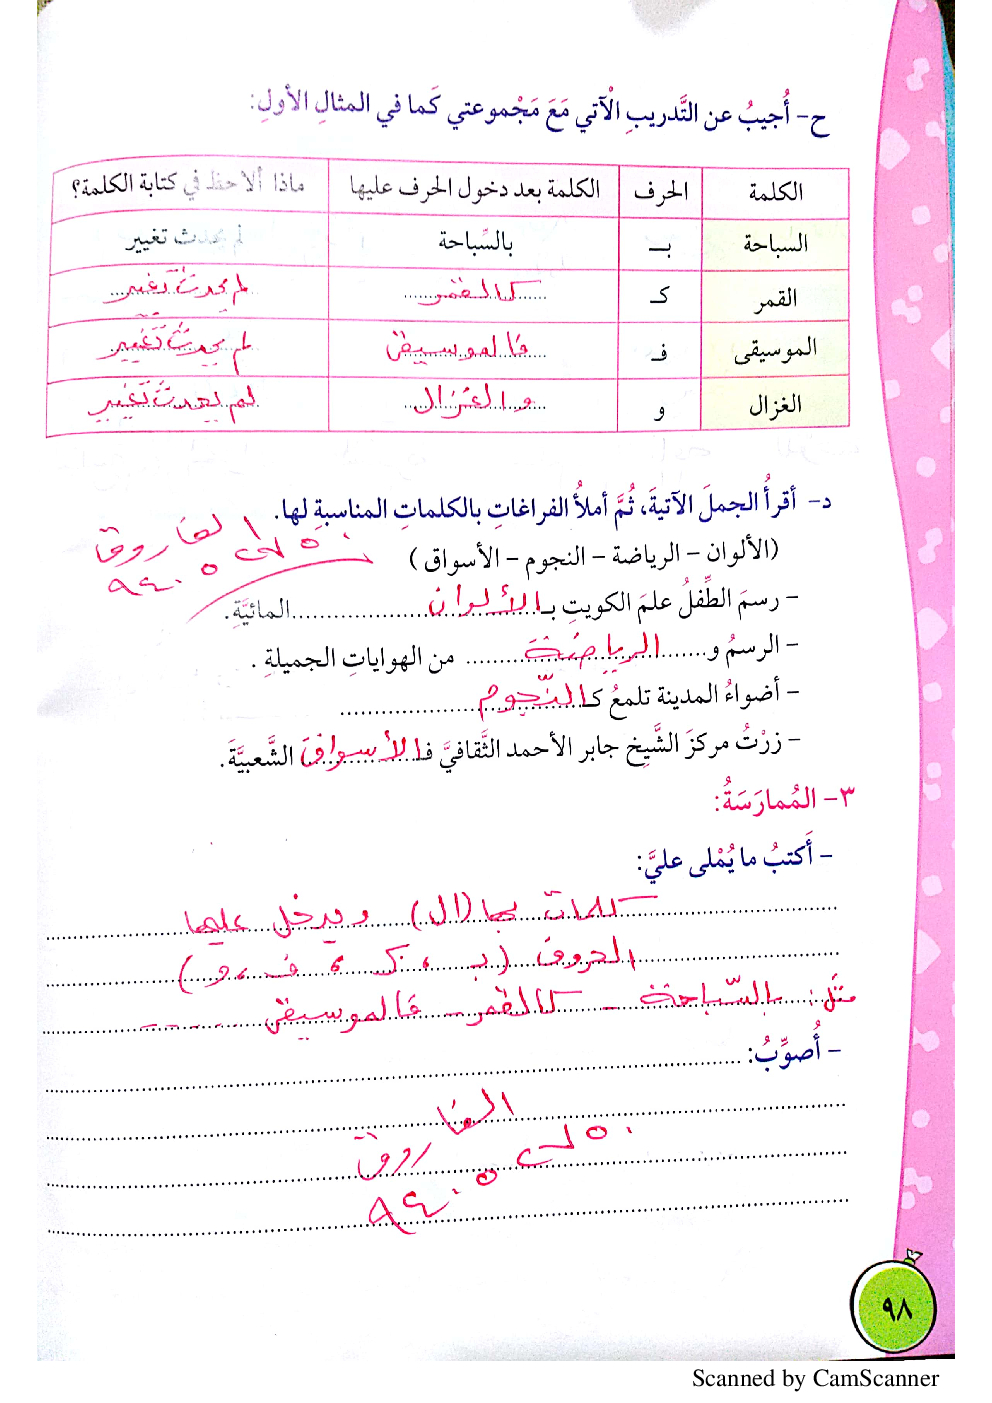 ح- أُجيبُ عن التَّدريبِ الْآتي مَعَ مَجْموعتي كَما في المثالِ الأولِ:
الكلمة الحرف الكلمة بعد دخول الحرف عليها ماذا ألاحظ في كتابة الكلمة؟
السباحة بـ بالسِّباحة لم يحدث تغيير
القمر كـ كالقمر لم يحدث تغيير
الموسيقى فـ فالموسيقى لم يحدث تغيير
الغزال و والغزال لم يحدث تغيير
د- أقرأُ الجملَ الآتيةَ، ثُمَّ أملأُ الفراغاتِ بالكلماتِ المناسبةِ لها.
(الألوان - الرياضة - النجوم - الأسواق)
- رسمَ الطِّفلُ علمَ الكويتِ بـالألوان المائيَّةِ.
- الرسمُ و الرياضة من الهواياتِ الجميلةِ .
- أضواءُ المدينة تلمعُ كـالنّجوم
- زرْتُ مركزَ الشَّيخ جابر الأحمد الثَّقافيَّ فالأسواقَ الشَّعبيَّةَ.
٣- المُمارَسَةُ:
- أَكتبُ ما يُمْلى عليَّ:
كلمات بها (ال) ويدخل عليها
الحروف (بـ ، كـ ، فـ ، و)
مثل: بالسّباحة - كالقمر - فالموسيقى
- أُصوِّبُ:
الفاروق
٩٨
Scanned by CamScanner